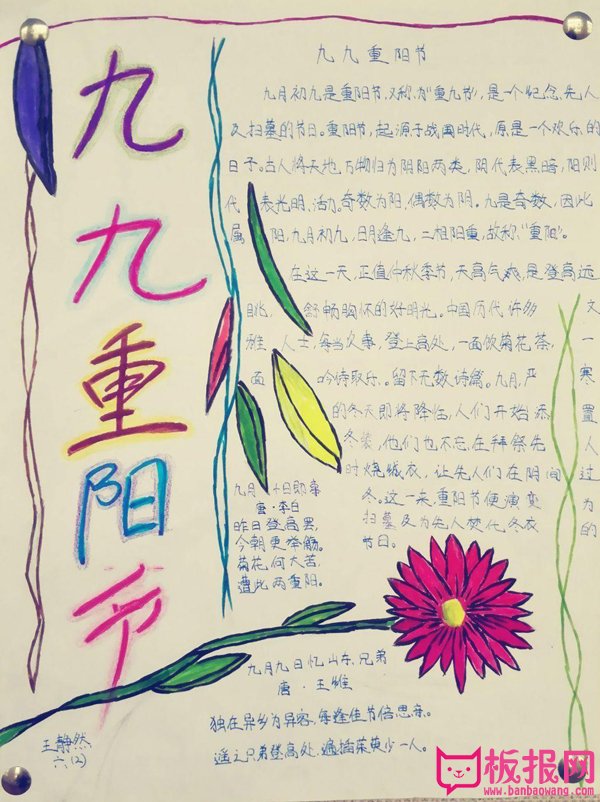 九九重阳节
九九重阳节
九月初九是重阳节,又称为"重九节",是一个纪念先人
及扫墓的节日。重阳节,起源于战国时代,原是一个欢乐的
日子。古人将天地万物归为阴阳两类,阴代表黑暗,阳则
代表光明、活力。奇数为阳,偶数为阴。九是奇数,因此
属阳,九月初九,日月逢九,二相阳重,故称"重阳"。
在这一天,正值仲秋季节,天高气爽,是登高远
眺,舒畅胸怀的好明光。中国历代许多文
雅人士,每当次事,登上高处,一面饮菊花茶,一
面吟诗取乐。留下无数诗篇。九月,严寒
的冬天即将降临,人们开始添置
冬装,他们也不忘在拜祭先人
时烧纸衣,让先人们在阴间过
冬。这一来重阳节便演变为
扫墓及为先人焚化冬衣的
节日。
九月十日即事
唐·李白
昨日登高罢,
今朝更举觞。
菊花何大苦,
遭此两重阳。
九月九日忆山东兄弟
唐·王维
独在异乡为异客,每逢佳节倍思亲。
遥知兄弟登高处,遍插茱萸少一人。
王静然
六(2)
板报网
www.banbaowang.com